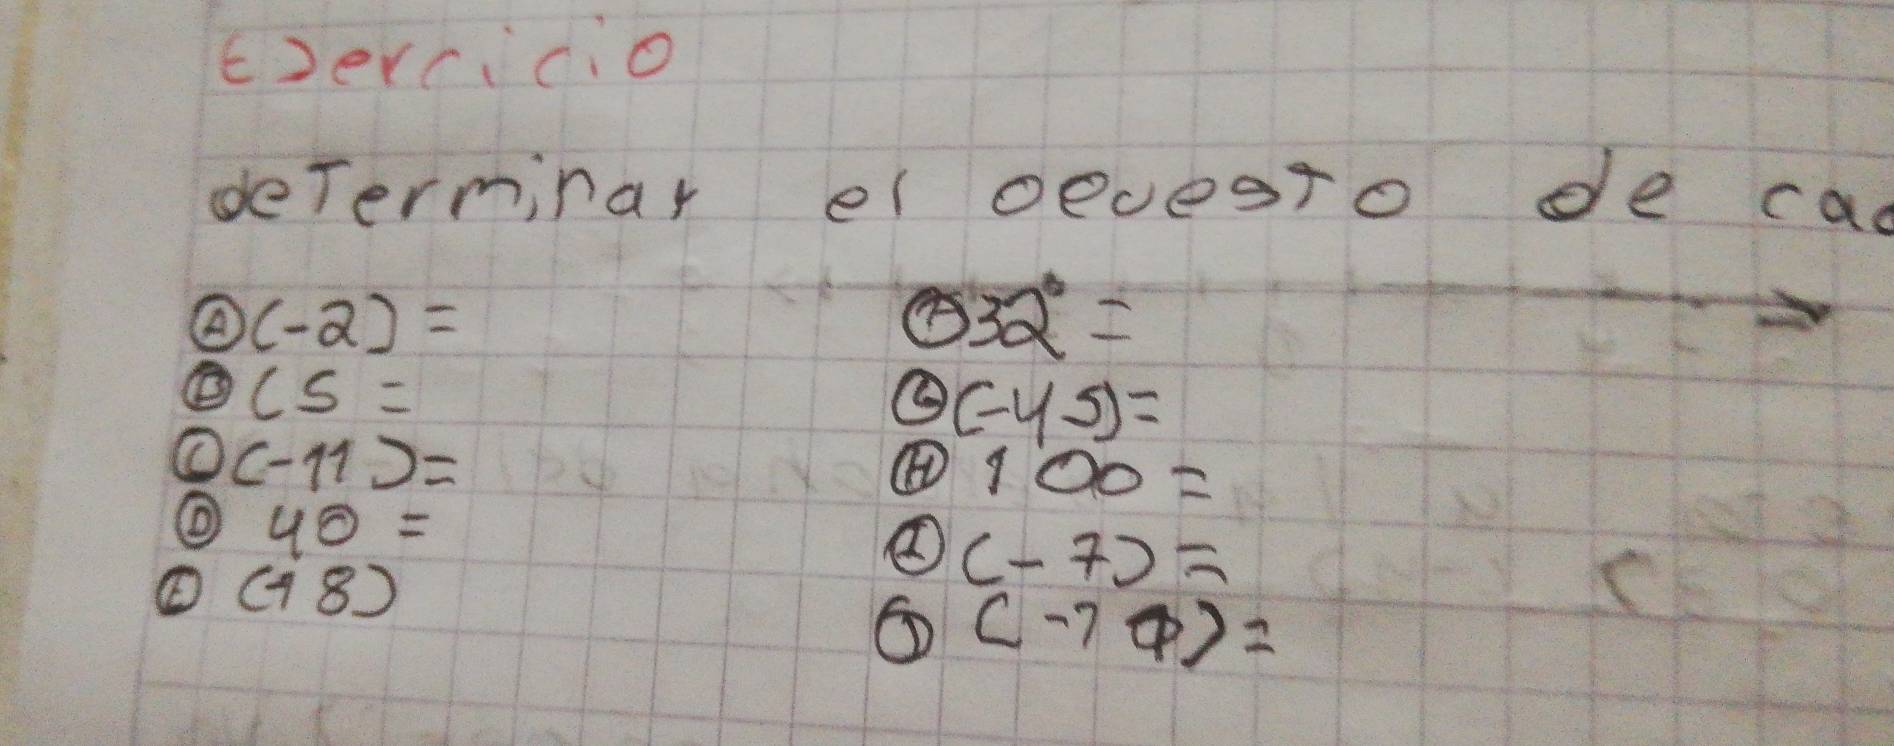 Ejercicio
determinar el opuesto de cad
A (-2) =
B (5 =
C (-11) =
D 40 =
E (18)
F 32° =
G (-45) =
H 100 =
I (-7) =
J (-79) =